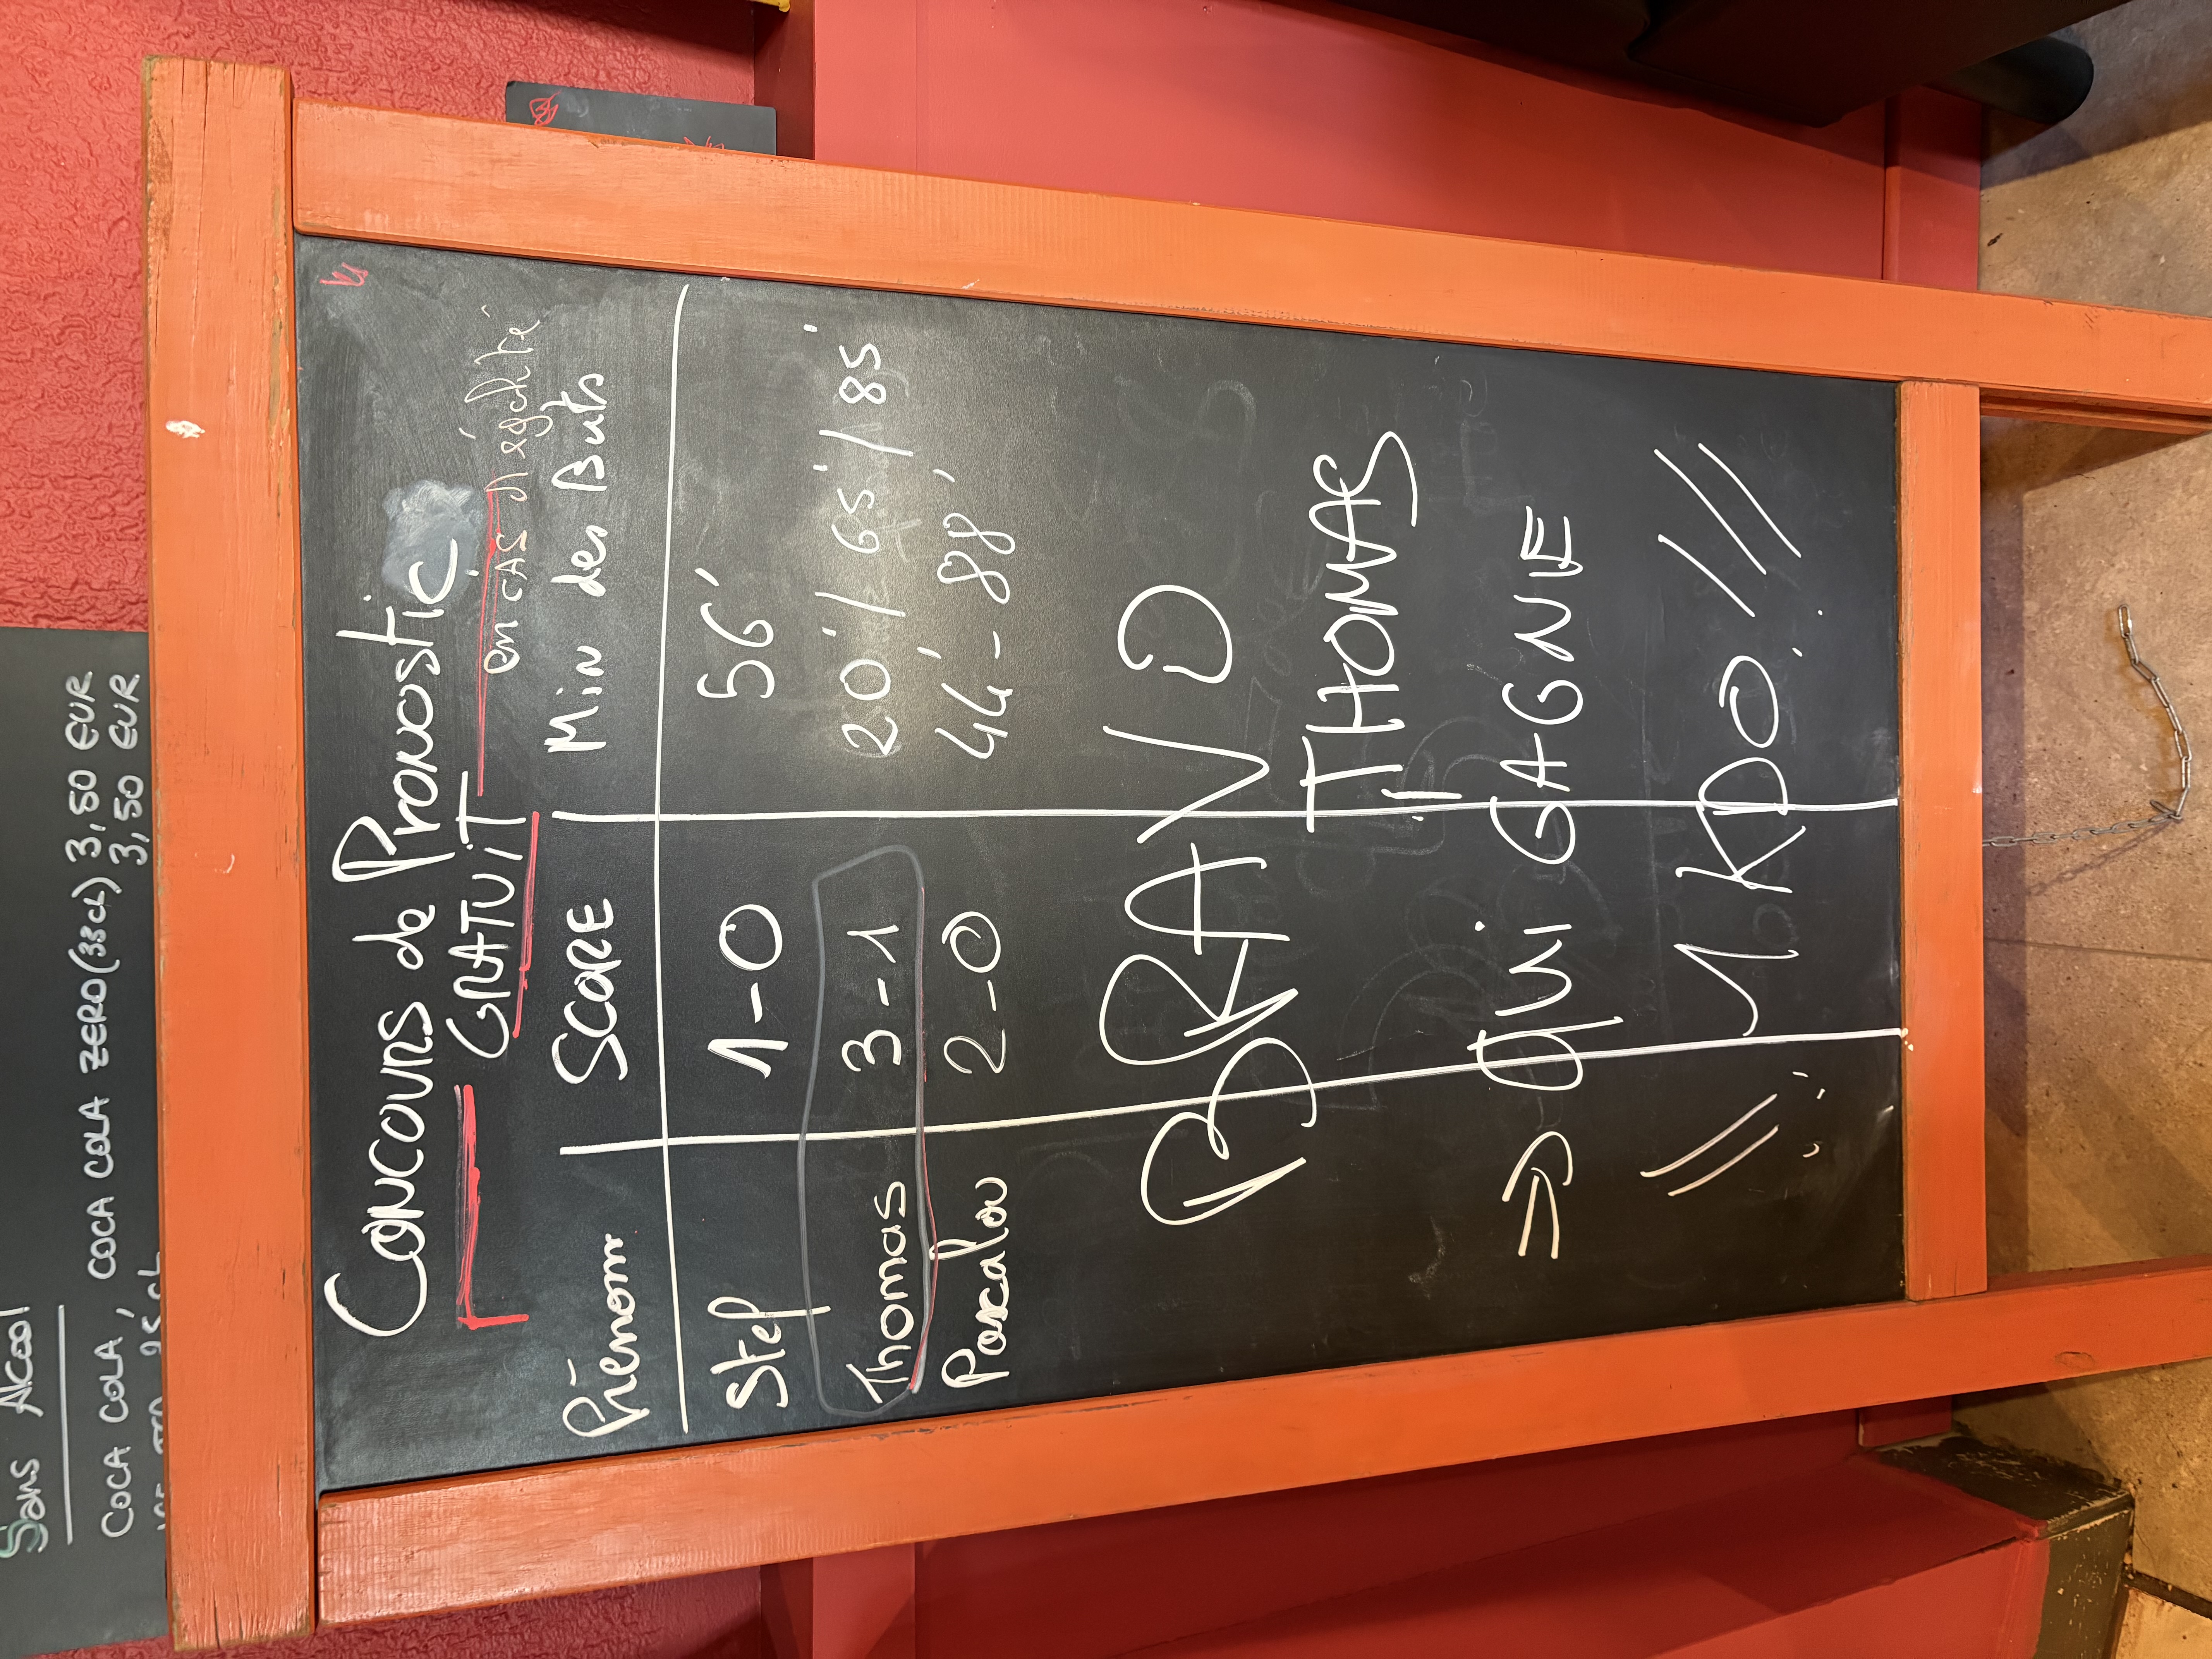 Sans Alcool
COCA COLA, COCA COLA ZERO (33cL) 3,50 EUR
3,50 EUR
Concours de Pronostic
GRATUIT
en CAS d'égalité
Prénom SCORE Min des Buts
Stef 1-0 56'
Thomas 3-1 20'/65'/85'
Pascalou 2-0 44'-88'
BRAVO
THOMAS
=> QUI GAGNE
1 KDO !!!